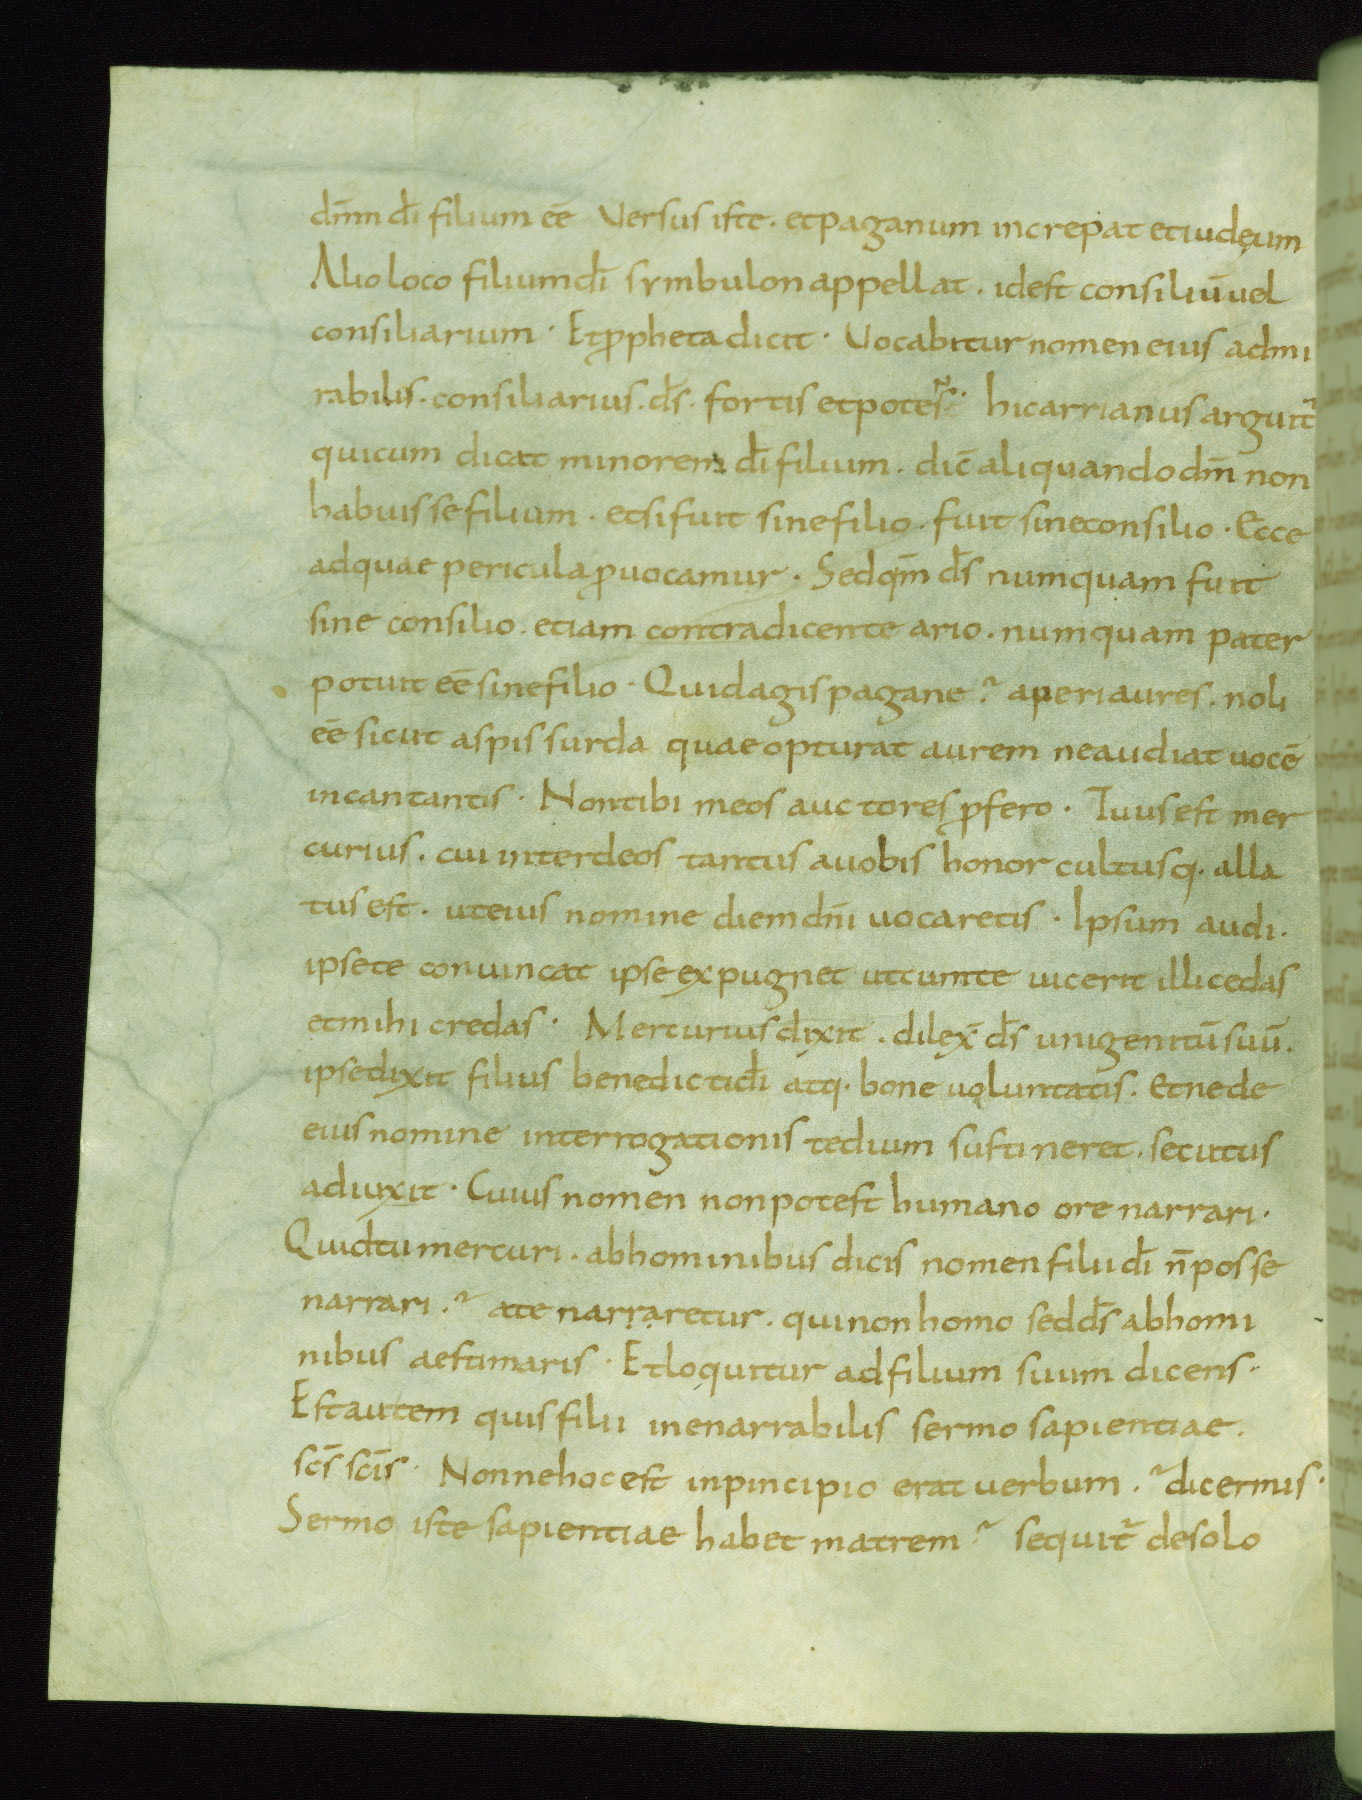 dm̄m dī filium eē Versus iste · et paganum increpat et iudęum
Alio loco filium dī symbulon appellat · id est consiliū uel
consiliarium · Et ꝓpheta dicit · Vocabitur nomen eius admi
rabilis · consiliarius · d̄s · fortis et potens · hic arrianus arguit᷑
qui cum dicat minorem dī filium · dic̄ aliquando dm̄ non
habuisse filium · et si fuit sine filio · fuit sine consilio · Ecce
ad quae pericula ꝓuocamur · Sed qm̄ d̄s numquam fuit
sine consilio · etiam contradicente ario · numquam pater
potuit eē sine filio · Quid agis pagane ? aperi aures · noli
eē sicut aspis surda quae opturat aurem ne audiat uocē
incantantis · Non tibi meos auctores ꝓfero · Tuus est mer
curius · cui inter deos tantus a uobis honor cultusq · alla
tus est · ut eius nomine diem dn̄i uocaretis · Ipsum audi ·
ipse te conuincat ipse expugnet ut cum te uicerit illi cedas
et mihi credas · Mercurius dixit · dilex̄ d̄s unigenitū suū ·
ipse dixit filius benedicti dī atq · bone uoluntatis · Et ne de
eius nomine interrogationis tedium sustineret · secutus
adiuxit · Cuius nomen non potest humano ore narrari ·
Quid tu mercuri · ab hominibus dicis nomen filii dī n̄ posse
narrari · ? a te narraretur · qui non homo sed d̄s ab homi
nibus aestimaris · Et loquitur ad filium suum dicens ·
Est autem quis filii inenarrabilis sermo sapientiae ·
sc̄s sc̄is · Nonne hoc est in pincipio erat uerbum · ? dic ermis ·
Sermo iste sapientiae habet matrem ? sequit᷑ de solo